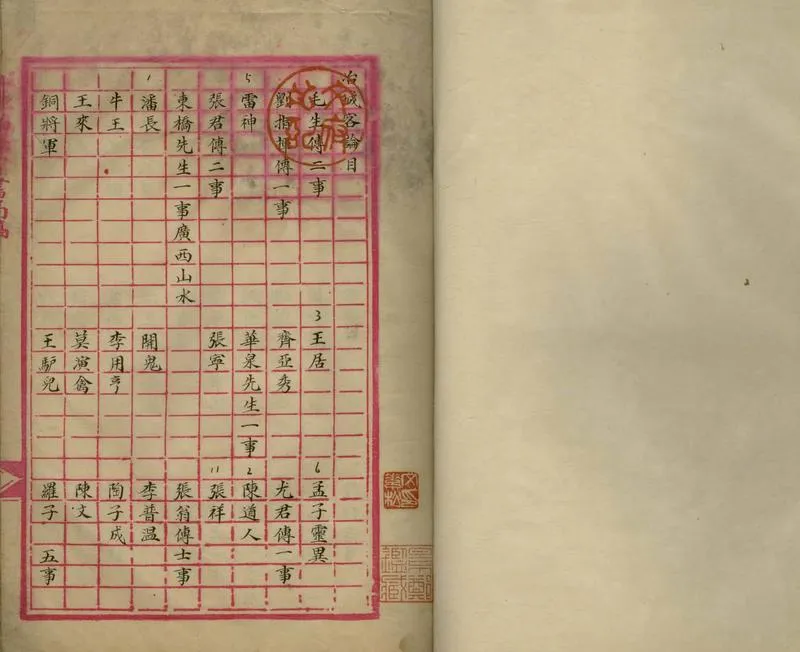 冶城客論目
毛生傳二事 王居 孟子靈異
劉指揮傳一事 齊亞秀 尤君傳一事
雷神 華泉先生一事 陳道人
張君傳二事 張寧 張祥
東橋先生一事廣西山水 張翁傳士事
潘長 開鬼 李普温
牛王 李用亨 陶子成
王來 莫演禽 陳文
銅將軍 王馿兒 羅子 五事